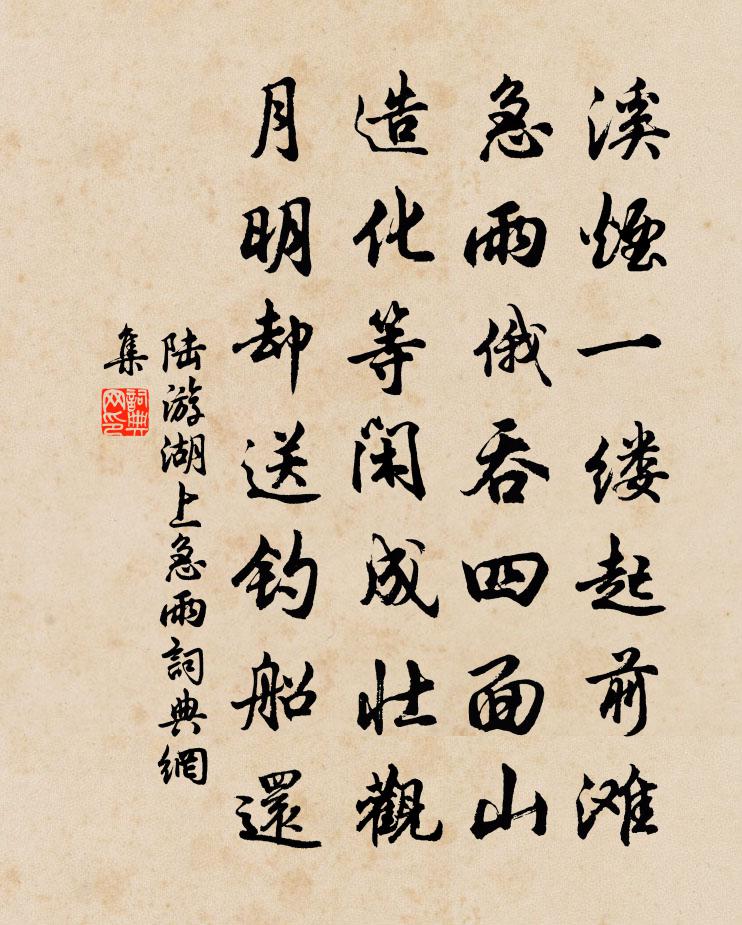 溪煙一缕起前滩
急雨俄吞四面山
造化等閑成壮觀
月明却送钓船還
陆游湖上急雨詞典網
集
詞典网印